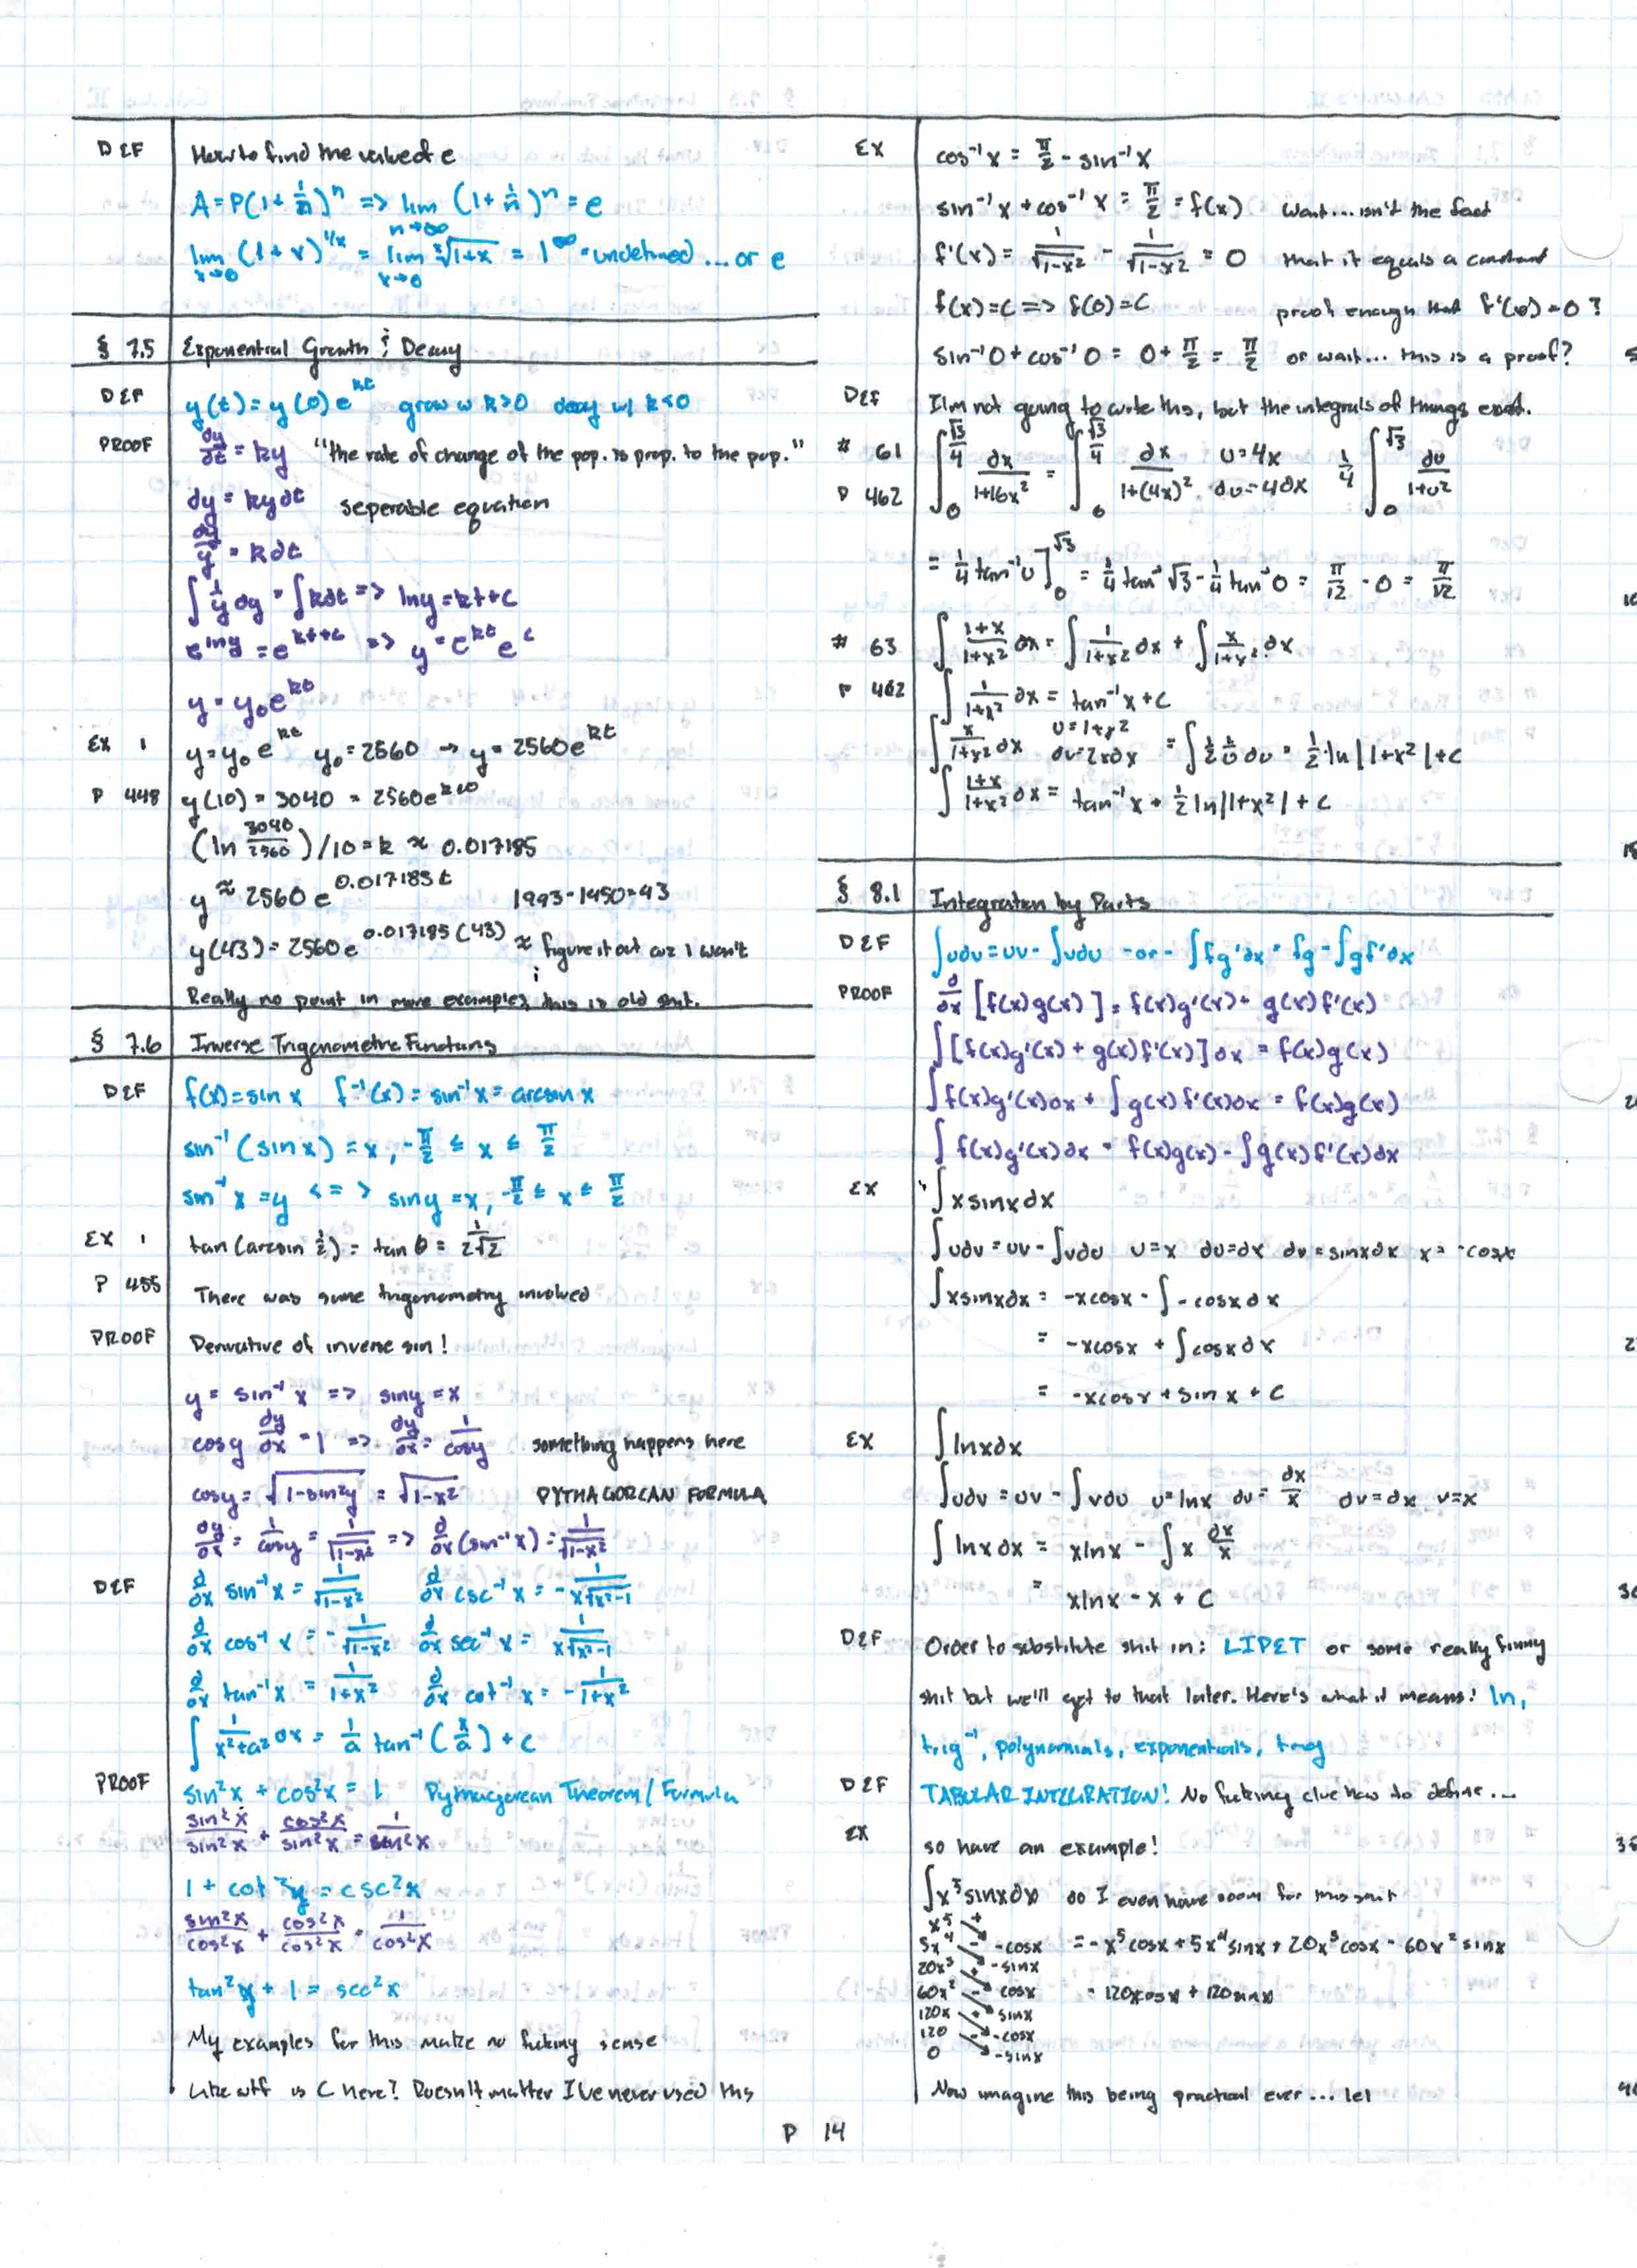 DEF How to find the value of e
A = P(1 + 1/n)^n => lim n→∞ (1 + 1/n)^n = e
lim x→0 (1 + x)^1/x = lim x→0 ˣ√1+x = 1^∞ = undefined ... or e
§ 7.5 Exponential Growth & Decay
DEF y(t) = y(0)e^kt grow w k>0 decay w/ k<0
PROOF dy/dt = ky "the rate of change of the pop. is prop. to the pop."
dy = kydt seperable equation
dy/y = kdt
∫ 1/y dy = ∫kdt => lny = kt + c
e^lny = e^kt+c => y = e^kt e^c
y = y₀e^kt
EX 1 y = y₀e^kt y₀ = 2560 → y = 2560e^kt
P 448 y(10) = 3040 = 2560e^k10
(ln 3040/2560)/10 = k ≈ 0.017185
y ≈ 2560e^0.017185t 1993-1950=43
y(43) = 2560e^0.017185(43) ≈ figure it out cuz I won't
Really no point in more examples, this is old shit.
§ 7.6 Inverse Trigonometric Functions
DEF f(x) = sin x f⁻¹(x) = sin⁻¹x = arcsin x
sin⁻¹(sin x) = x, -π/2 ≤ x ≤ π/2
sin⁻¹x = y <=> sin y = x, -π/2 ≤ x ≤ π/2
EX 1 tan(arcsin 1/2) = tan θ = 1/2√2
P 455 There was some trigonometry involved
PROOF Derivative of inverse sin!
y = sin⁻¹ x => sin y = x
cos y dy/dx = 1 => dy/dx = 1/cosy something happens here
cosy = √1-sin²y = √1-x² PYTHAGOREAN FORMULA
dy/dx = 1/cosy = 1/√1-x² => d/dx (sin⁻¹x) = 1/√1-x²
DEF d/dx sin⁻¹x = 1/√1-x² d/dx csc⁻¹x = -1/x√x²-1
d/dx cos⁻¹x = -1/√1-x² d/dx sec⁻¹x = 1/x√x²-1
d/dx tan⁻¹x = 1/1+x² d/dx cot⁻¹x = -1/1+x²
∫ 1/x²+a² dx = 1/a tan⁻¹(x/a) + c
PROOF sin²x + cos²x = 1 Pythagorean Theorem / Formula
sin²x/sin²x + cos²x/sin²x = 1/sin²x
1 + cot²x = csc²x
sin²x/cos²x + cos²x/cos²x = 1/cos²x
tan²x + 1 = sec²x
My examples for this make no fucking sense
Like wtf is C here? Doesn't matter I've never used this
EX cos⁻¹x = π/2 - sin⁻¹x
sin⁻¹x + cos⁻¹x = π/2 = f(x) Wait... isn't the fact
f'(x) = 1/√1-x² - 1/√1-x² = 0 that it equals a constant
f(x) = C => f(0) = C proof enough that f'(x) = 0?
sin⁻¹0 + cos⁻¹0 = 0 + π/2 = π/2 or wait... this is a proof? 5
DEF I'm not going to write this, but the integrals of things exist.
# 61 ∫₀^√3/4 dx/1+16x² = ∫₀^√3/4 dx/1+(4x)² u=4x 1/4 ∫₀^√3 du/1+u²
P 462 du=4dx
= 1/4 tan⁻¹u]₀^√3 = 1/4 tan⁻¹√3 - 1/4 tan⁻¹0 = π/12 - 0 = π/12
# 63 ∫ 1+x/1+x² dx = ∫ 1/1+x² dx + ∫ x/1+x² dx
P 462 ∫ 1/1+x² dx = tan⁻¹x + c
∫ x/1+x² dx u=1+x² du=2xdx = ∫ 1/2 1/u du = 1/2 ln|1+x²| + c
∫ 1+x/1+x² dx = tan⁻¹x + 1/2 ln|1+x²| + c
§ 8.1 Integration by Parts
DEF ∫udv = uv - ∫vdu -or- ∫fg'dx = fg - ∫gf'dx
PROOF d/dx [f(x)g(x)] = f(x)g'(x) + g(x)f'(x)
∫[f(x)g'(x) + g(x)f'(x)]dx = f(x)g(x)
∫f(x)g'(x)dx + ∫g(x)f'(x)dx = f(x)g(x)
∫f(x)g'(x)dx = f(x)g(x) - ∫g(x)f'(x)dx
EX ∫xsinxdx
∫udv = uv - ∫vdu u=x du=dx dv=sinxdx x=-cosx
∫xsinxdx = -xcosx - ∫-cosxdx
= -xcosx + ∫cosxdx
= -xcosx + sinx + C
EX ∫lnxdx
∫udv = uv - ∫vdu u=lnx du=dx/x dv=dx v=x
∫lnxdx = xlnx - ∫x dx/x
= xlnx - x + C
DEF Order to substitute shit in: LIPET or some really funny
shit but we'll get to that later. Here's what it means: ln,
trig⁻¹, polynomials, exponentials, trig
DEF TABULAR INTEGRATION! No fucking clue how to define...
EX so have an example!
∫x⁵sinxdx do I even have room for this shit
x⁵ +
5x⁴ - -cosx = -x⁵cosx + 5x⁴sinx + 20x³cosx - 60x²sinx
20x³ + -sinx
60x² - cosx - 120xcosx + 120sinx
120x + sinx
120 - -cosx
0 -sinx
Now imagine this being practical ever... lel
P 14